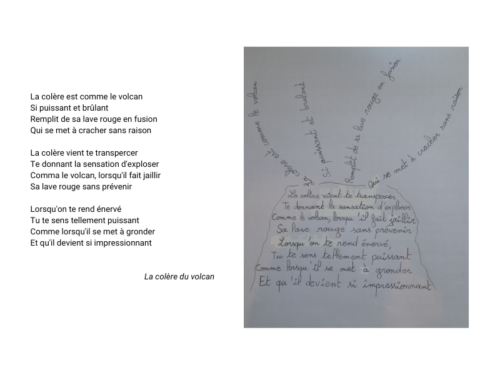 La colère est comme le volcan
Si puissant et brûlant
Remplit de sa lave rouge en fusion
Qui se met à cracher sans raison
La colère vient te transpercer
Te donnant la sensation d'exploser
Comma le volcan, lorsqu'il fait jaillir
Sa lave rouge sans prévenir
Lorsqu'on te rend énervé
Tu te sens tellement puissant
Comme lorsqu'il se met à gronder
Et qu'il devient si impressionnant
La colère du volcan
La colère est comme le volcan
Si puissant et brûlant
Remplit de sa lave rouge en fusion
Qui se met à cracher sans raison
La colère vient te transpercer
Te donnant la sensation d'exploser
Comme le volcan, lorsqu'il fait jaillir
Sa lave rouge sans prévenir
Lorsqu'on te rend énervé,
Tu te sens tellement puissant
Comme lorsqu'il se met à gronder
Et qu'il devient si impressionnant